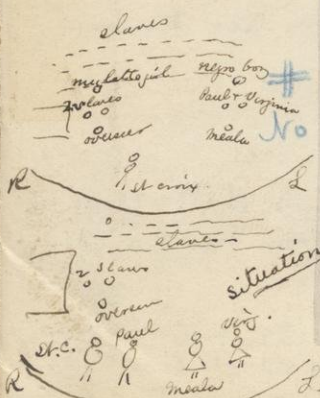 slaves
mulatto girl negro boy #
2 slaves Paul & Virginia
overseer Meala No
R St Croix. L
slaves
2 slaves
situation
overseer
St. C. Paul Virg.
R Meala L